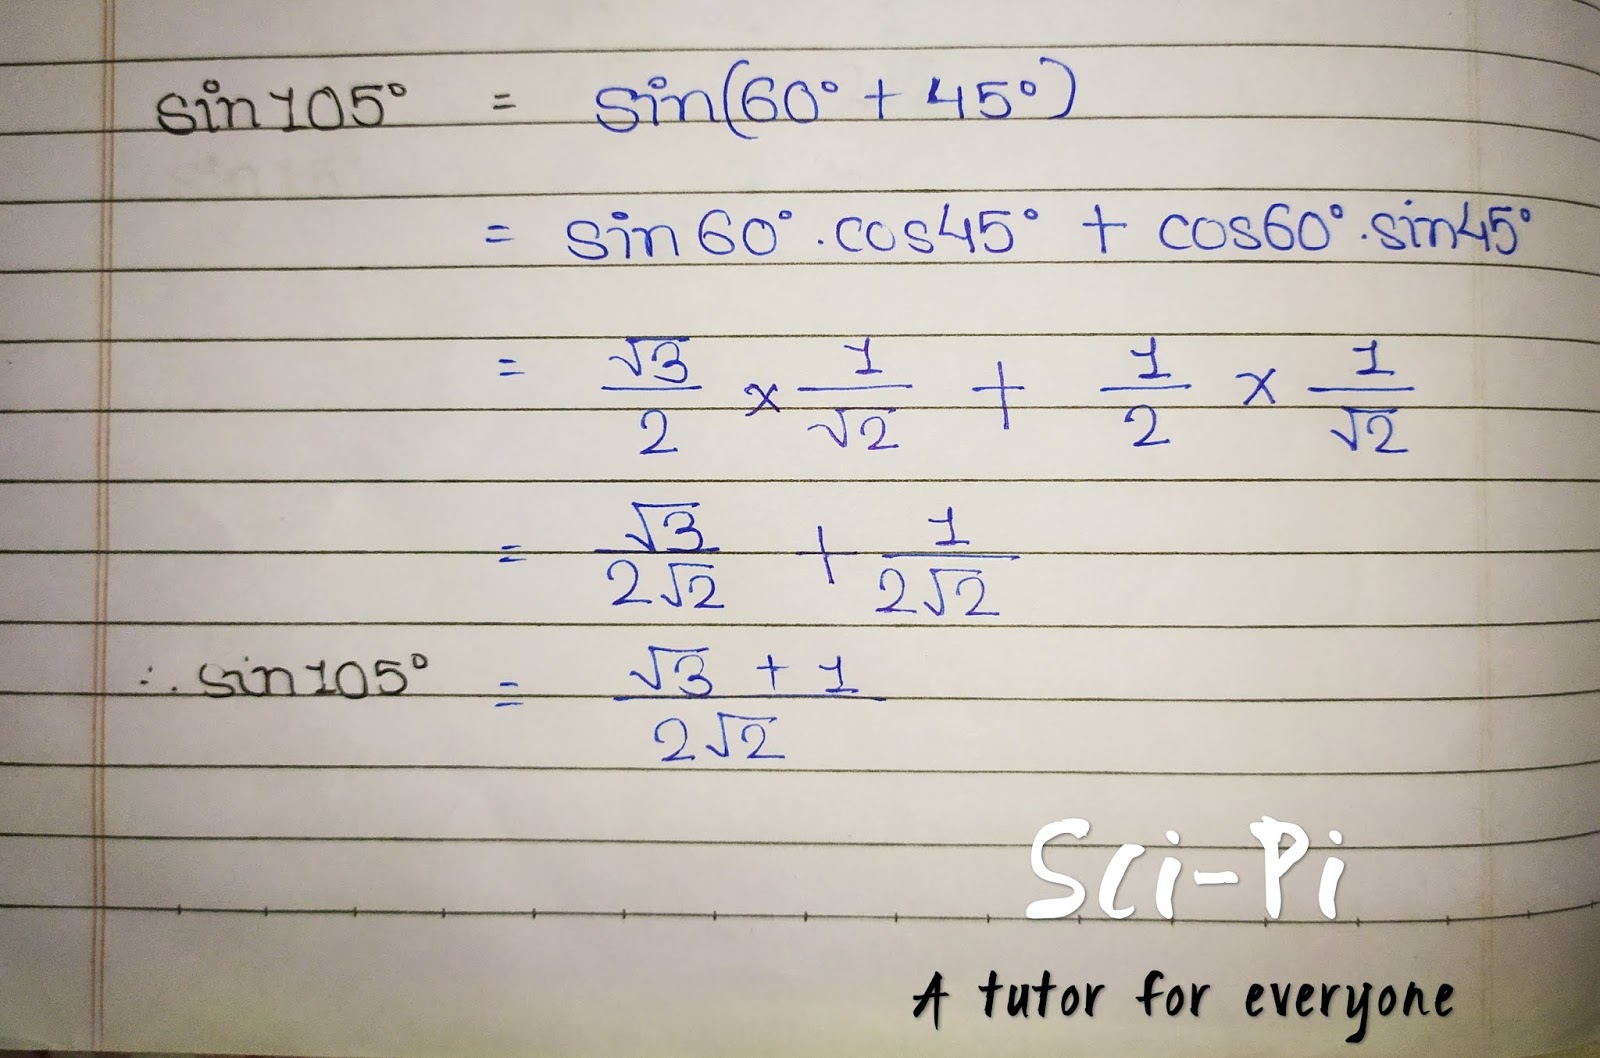 sin105° = sin(60° + 45°)
= sin60°.cos45° + cos60°.sin45°
= √3/2 × 1/√2 + 1/2 × 1/√2
= √3/2√2 + 1/2√2
∴ sin105° = √3 + 1/2√2
Sci-Pi
A tutor for everyone